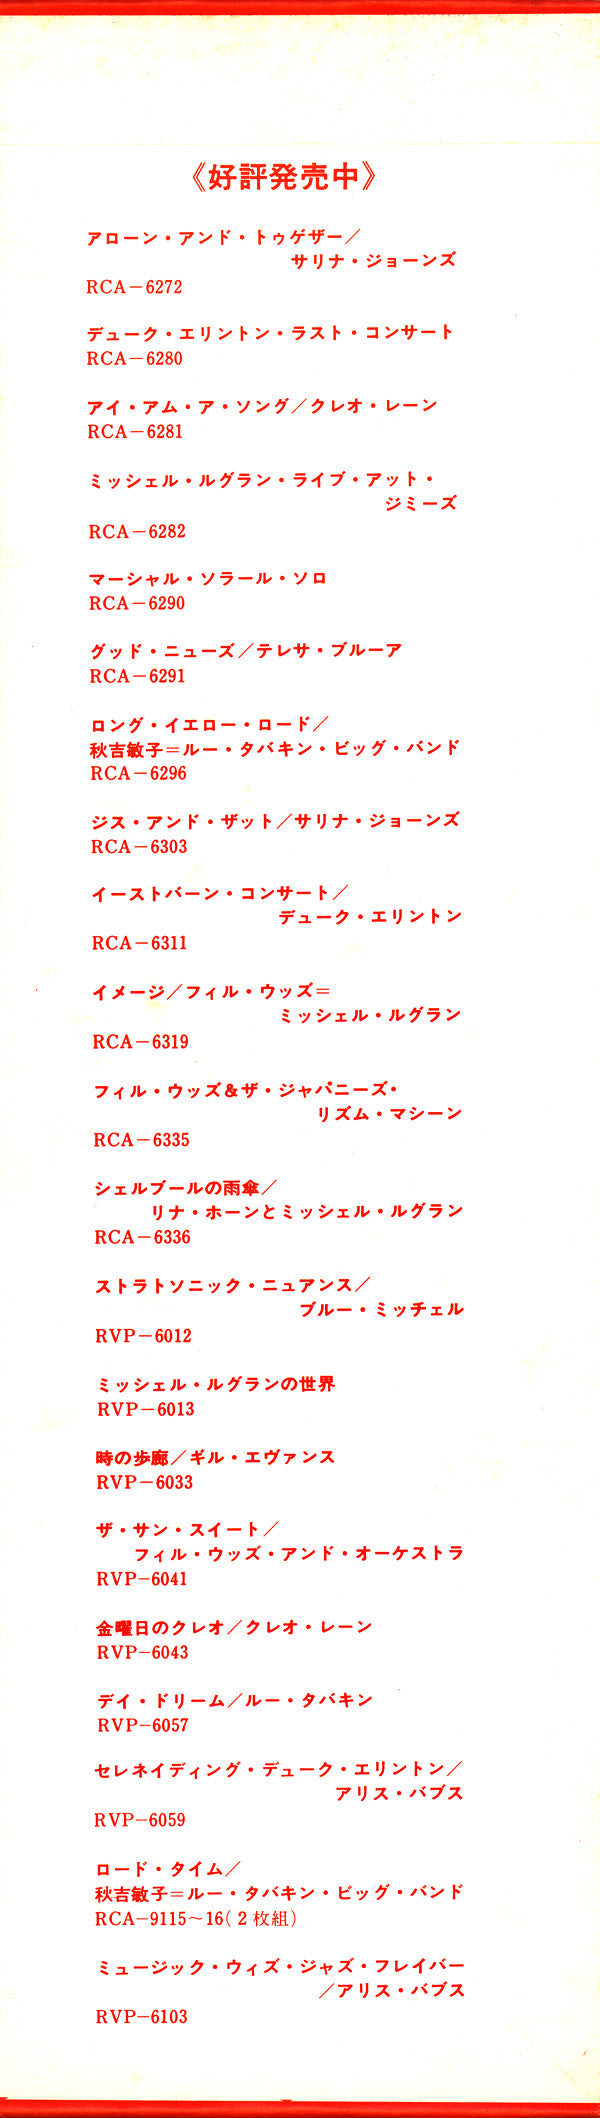 《好評発売中》
アローン・アンド・トゥゲザー／
サリナ・ジョーンズ
RCA－6272
デューク・エリントン・ラスト・コンサート
RCA－6280
アイ・アム・ア・ソング／クレオ・レーン
RCA－6281
ミッシェル・ルグラン・ライブ・アット・
ジミーズ
RCA－6282
マーシャル・ソラール・ソロ
RCA－6290
グッド・ニューズ／テレサ・ブルーア
RCA－6291
ロング・イエロー・ロード／
秋吉敏子＝ルー・タバキン・ビッグ・バンド
RCA－6296
ジス・アンド・ザット／サリナ・ジョーンズ
RCA－6303
イーストバーン・コンサート／
デューク・エリントン
RCA－6311
イメージ／フィル・ウッズ＝
ミッシェル・ルグラン
RCA－6319
フィル・ウッズ＆ザ・ジャパニーズ・
リズム・マシーン
RCA－6335
シェルブールの雨傘／
リナ・ホーンとミッシェル・ルグラン
RCA－6336
ストラトソニック・ニュアンス／
ブルー・ミッチェル
RVP－6012
ミッシェル・ルグランの世界
RVP－6013
時の歩廊／ギル・エヴァンス
RVP－6033
ザ・サン・スイート／
フィル・ウッズ・アンド・オーケストラ
RVP－6041
金曜日のクレオ／クレオ・レーン
RVP－6043
デイ・ドリーム／ルー・タバキン
RVP－6057
セレネイディング・デューク・エリントン／
アリス・バブス
RVP－6059
ロード・タイム／
秋吉敏子＝ルー・タバキン・ビッグ・バンド
RCA－9115～16(２枚組)
ミュージック・ウィズ・ジャズ・フレイバー
／アリス・バブス
RVP－6103